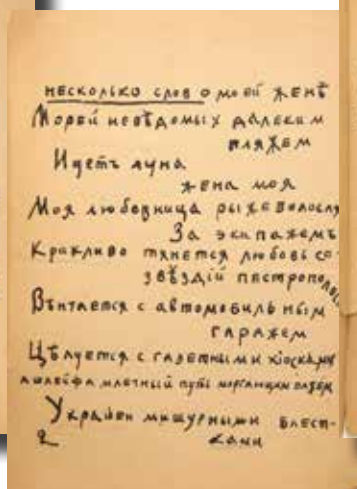 НЕСКОЛЬКО СЛОВ О МОЕЙ ЖЕНѢ
Морей невѣдомых далеким
пляжем
Идетъ луна
жена моя
Моя любовница рыжеволосая
За экипажемъ
Крикливо тянется любовь со-
звѣздій пестрополосая
Вѣнчается с автомобильным
гаражем
Цѣлуется с газетными кіосками
А шлейфа млечный путь моргающим пажем
Украшен мишурными блест-
2 ками